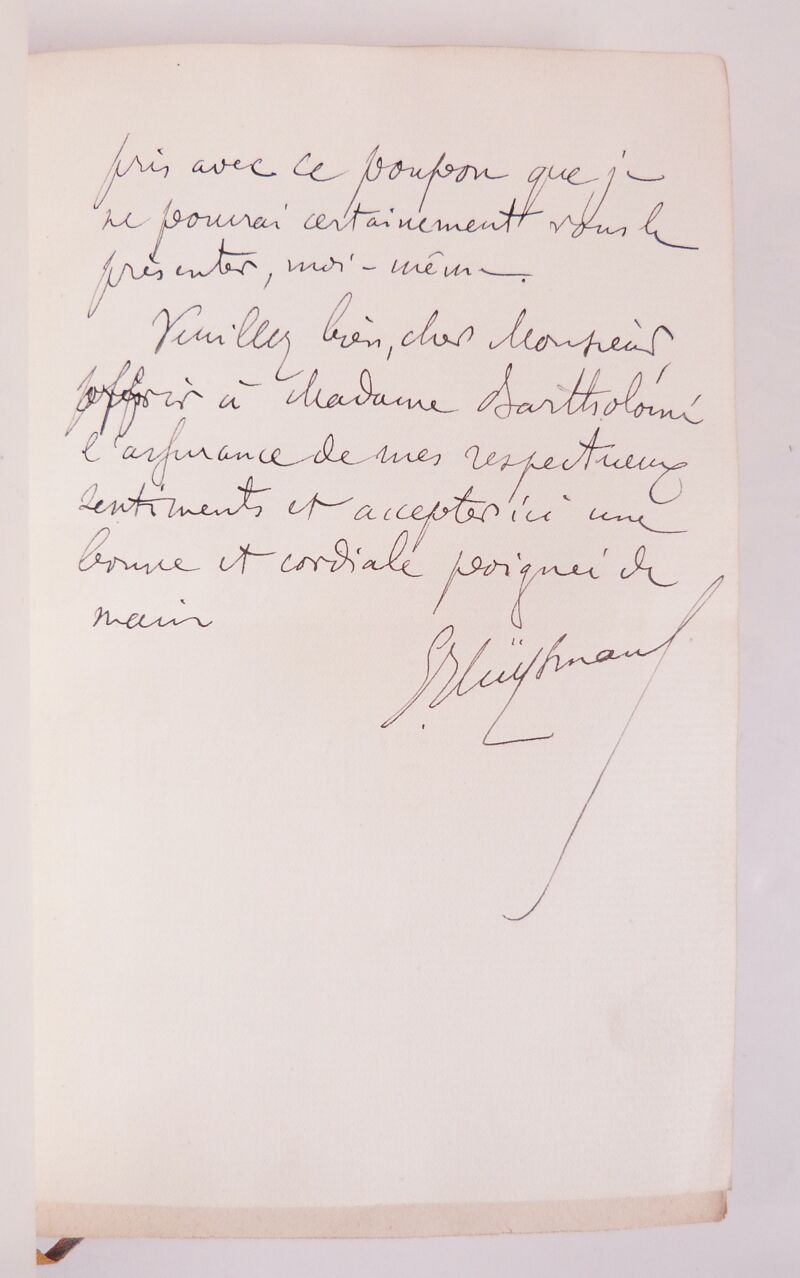 pris avec ce poupon que je
ne pourrai certainement vous le
présenter, moi-même.
Veuillez bien, cher Monsieur,
offrir à Madame Bartholomé
l'assurance de mes respectueux
sentiments et accepter ici une
bonne et cordiale poignée de
main
G Huÿsmans